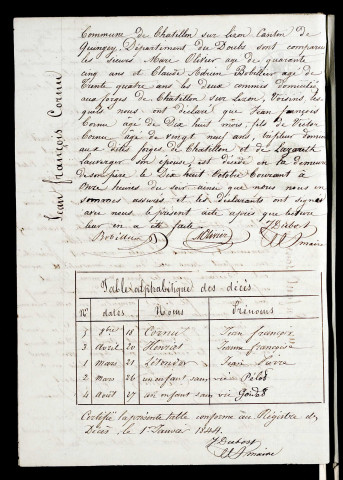 Jean François Cornu
Commune de Chatillon sur Lizon Canton de
Quingey, Département du Doubs sont comparu
les sieurs Marc Olivier age de quarante
cinq ans et Claude Bobillier age de
Trente quatre ans les deux commis domiciliés
aux forges de Chatillon sur Lizon, Voisins les
quels nous ont déclaré que Jean françois
Cornu age de Dix huit mois fils de
Cornu age de vingt neuf ans, domicilié
aux dites forges de Chatillon et de
Lauranger son épouse, est décédé en la demeure
de son père le Dix huit Octobre Courant à
Onze heures du soir ainsi que nous nous en
sommes assuré et les déclarants ont signé
avec nous le présent acte après que lecture
leur en a été faite
Bobillier MOlivier JDubost
Table alphabétique des décès
Nos dates Noms Prénoms
5 8bre 18 Cornu Jean françois
3 Avril 20 Henriet Jeanne françoise
1 Mars 21 Jean Pierre
2 Mars 26 un enfant sans vie Pélot
4 Aout 27 un enfant sans vie
Certifié la présente table conforme au Registre de
Décès le 1er Janvier 1844.
JDubost